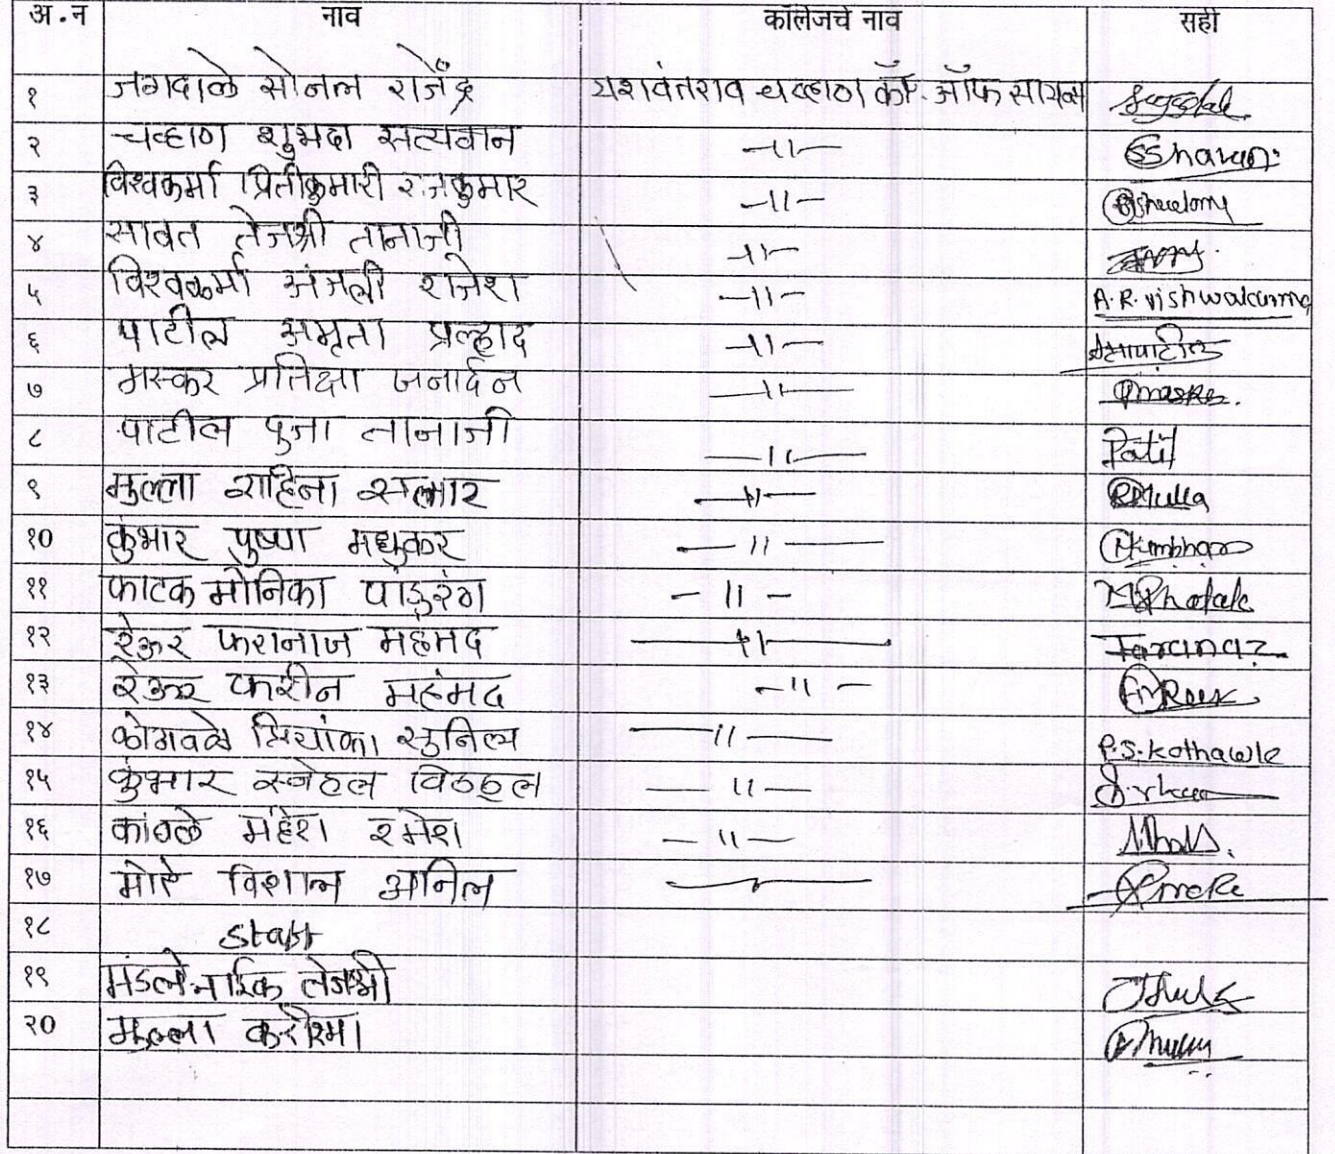 अ.न नाव कॉलेजचे नाव सही
१ जगदाळे सोनल राजेंद्र यशवंतराव चव्हाण कॉ. ऑफ सायन्स
२ चव्हाण शुभदा सत्यवान —11—
३ विश्वकर्मा प्रितीकुमारी राजकुमार —11—
४ सावंत तेजश्री तानाजी —11—
५ विश्वकर्मा अंजली राजेश —11— A.R.vishwakarma
६ पाटील अमृता प्रल्हाद —11—
७ मस्कर प्रतिक्षा जनार्दन —11— Pmaske.
८ पाटील पुजा तानाजी —11— Patil
९ मुल्ला शहिना सत्तार —11— RMulla
१० कुंभार पुष्पा मधुकर —11— Pkumbhar
११ फाटक मोनिका पांडुरंग —11— MPhatak
१२ रेऊर फरानाज महंमद —11— Faranaz
१३ रेऊर फरीन महंमद —11—
१४ प्रियांका सुनिल —11— P.S.Kothawle
१५ कुंभार स्नेहल विठ्ठल —11—
१६ कांबळे महेश रमेश —11—
१७ मोरे विशाल अनिल
१८ staff
१९ तेजश्री
२० मुल्ला करिश्मा